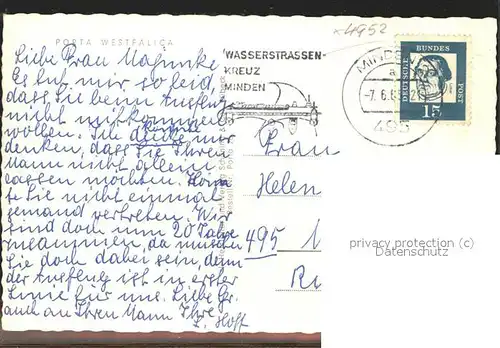 x4952
PORTA WESTFALICA
Liebe Frau
Es tut mir so leid,
dass Sie beim Ausflug
nicht mitkommen
wollen. Ich denke
könnte
denken, dass Sie Ihren
Mann nicht allein
lassen möchten. Kann
Sie nicht einmal
jemand vertreten? Wir
sind doch nun 20 Jahre
zusammen, da müssen
Sie doch dabei sein, denn
der Ausflug ist in erster
Linie für uns. Liebe Gr.
auch an Ihren Mann Ihre
L. Hoff
WASSERSTRASSEN-
KREUZ
MINDEN
MINDEN
a
-7.6.6
495
DEUTSCHE BUNDESPOST
15
Frau
Helen
495
privacy protection (c)
Datenschutz